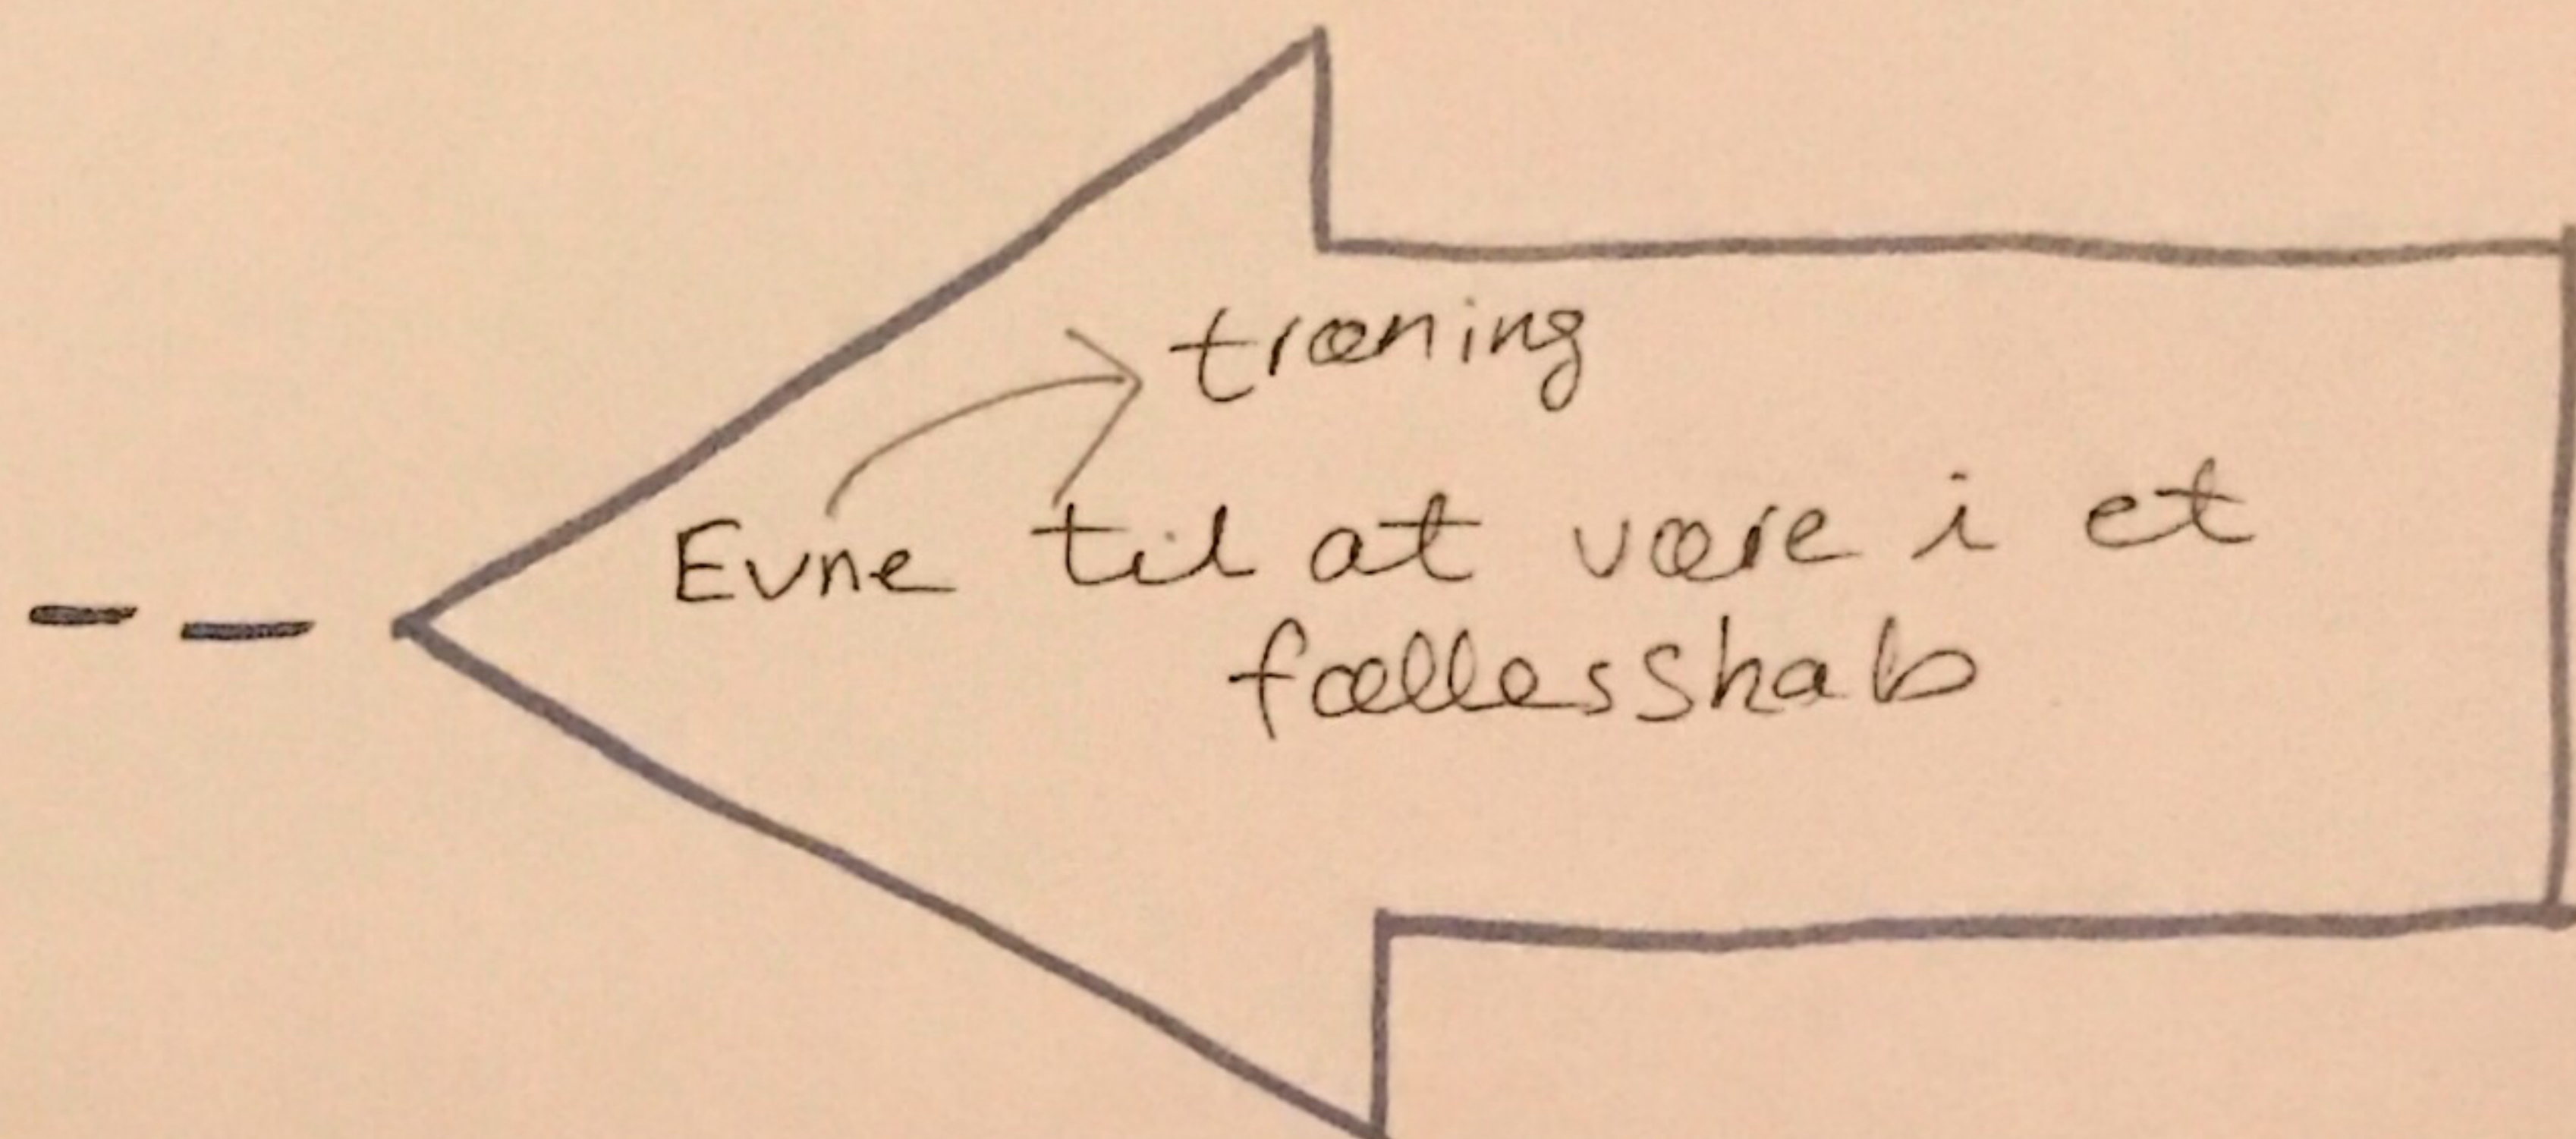 træning
Evne til at være i et
fællesskab